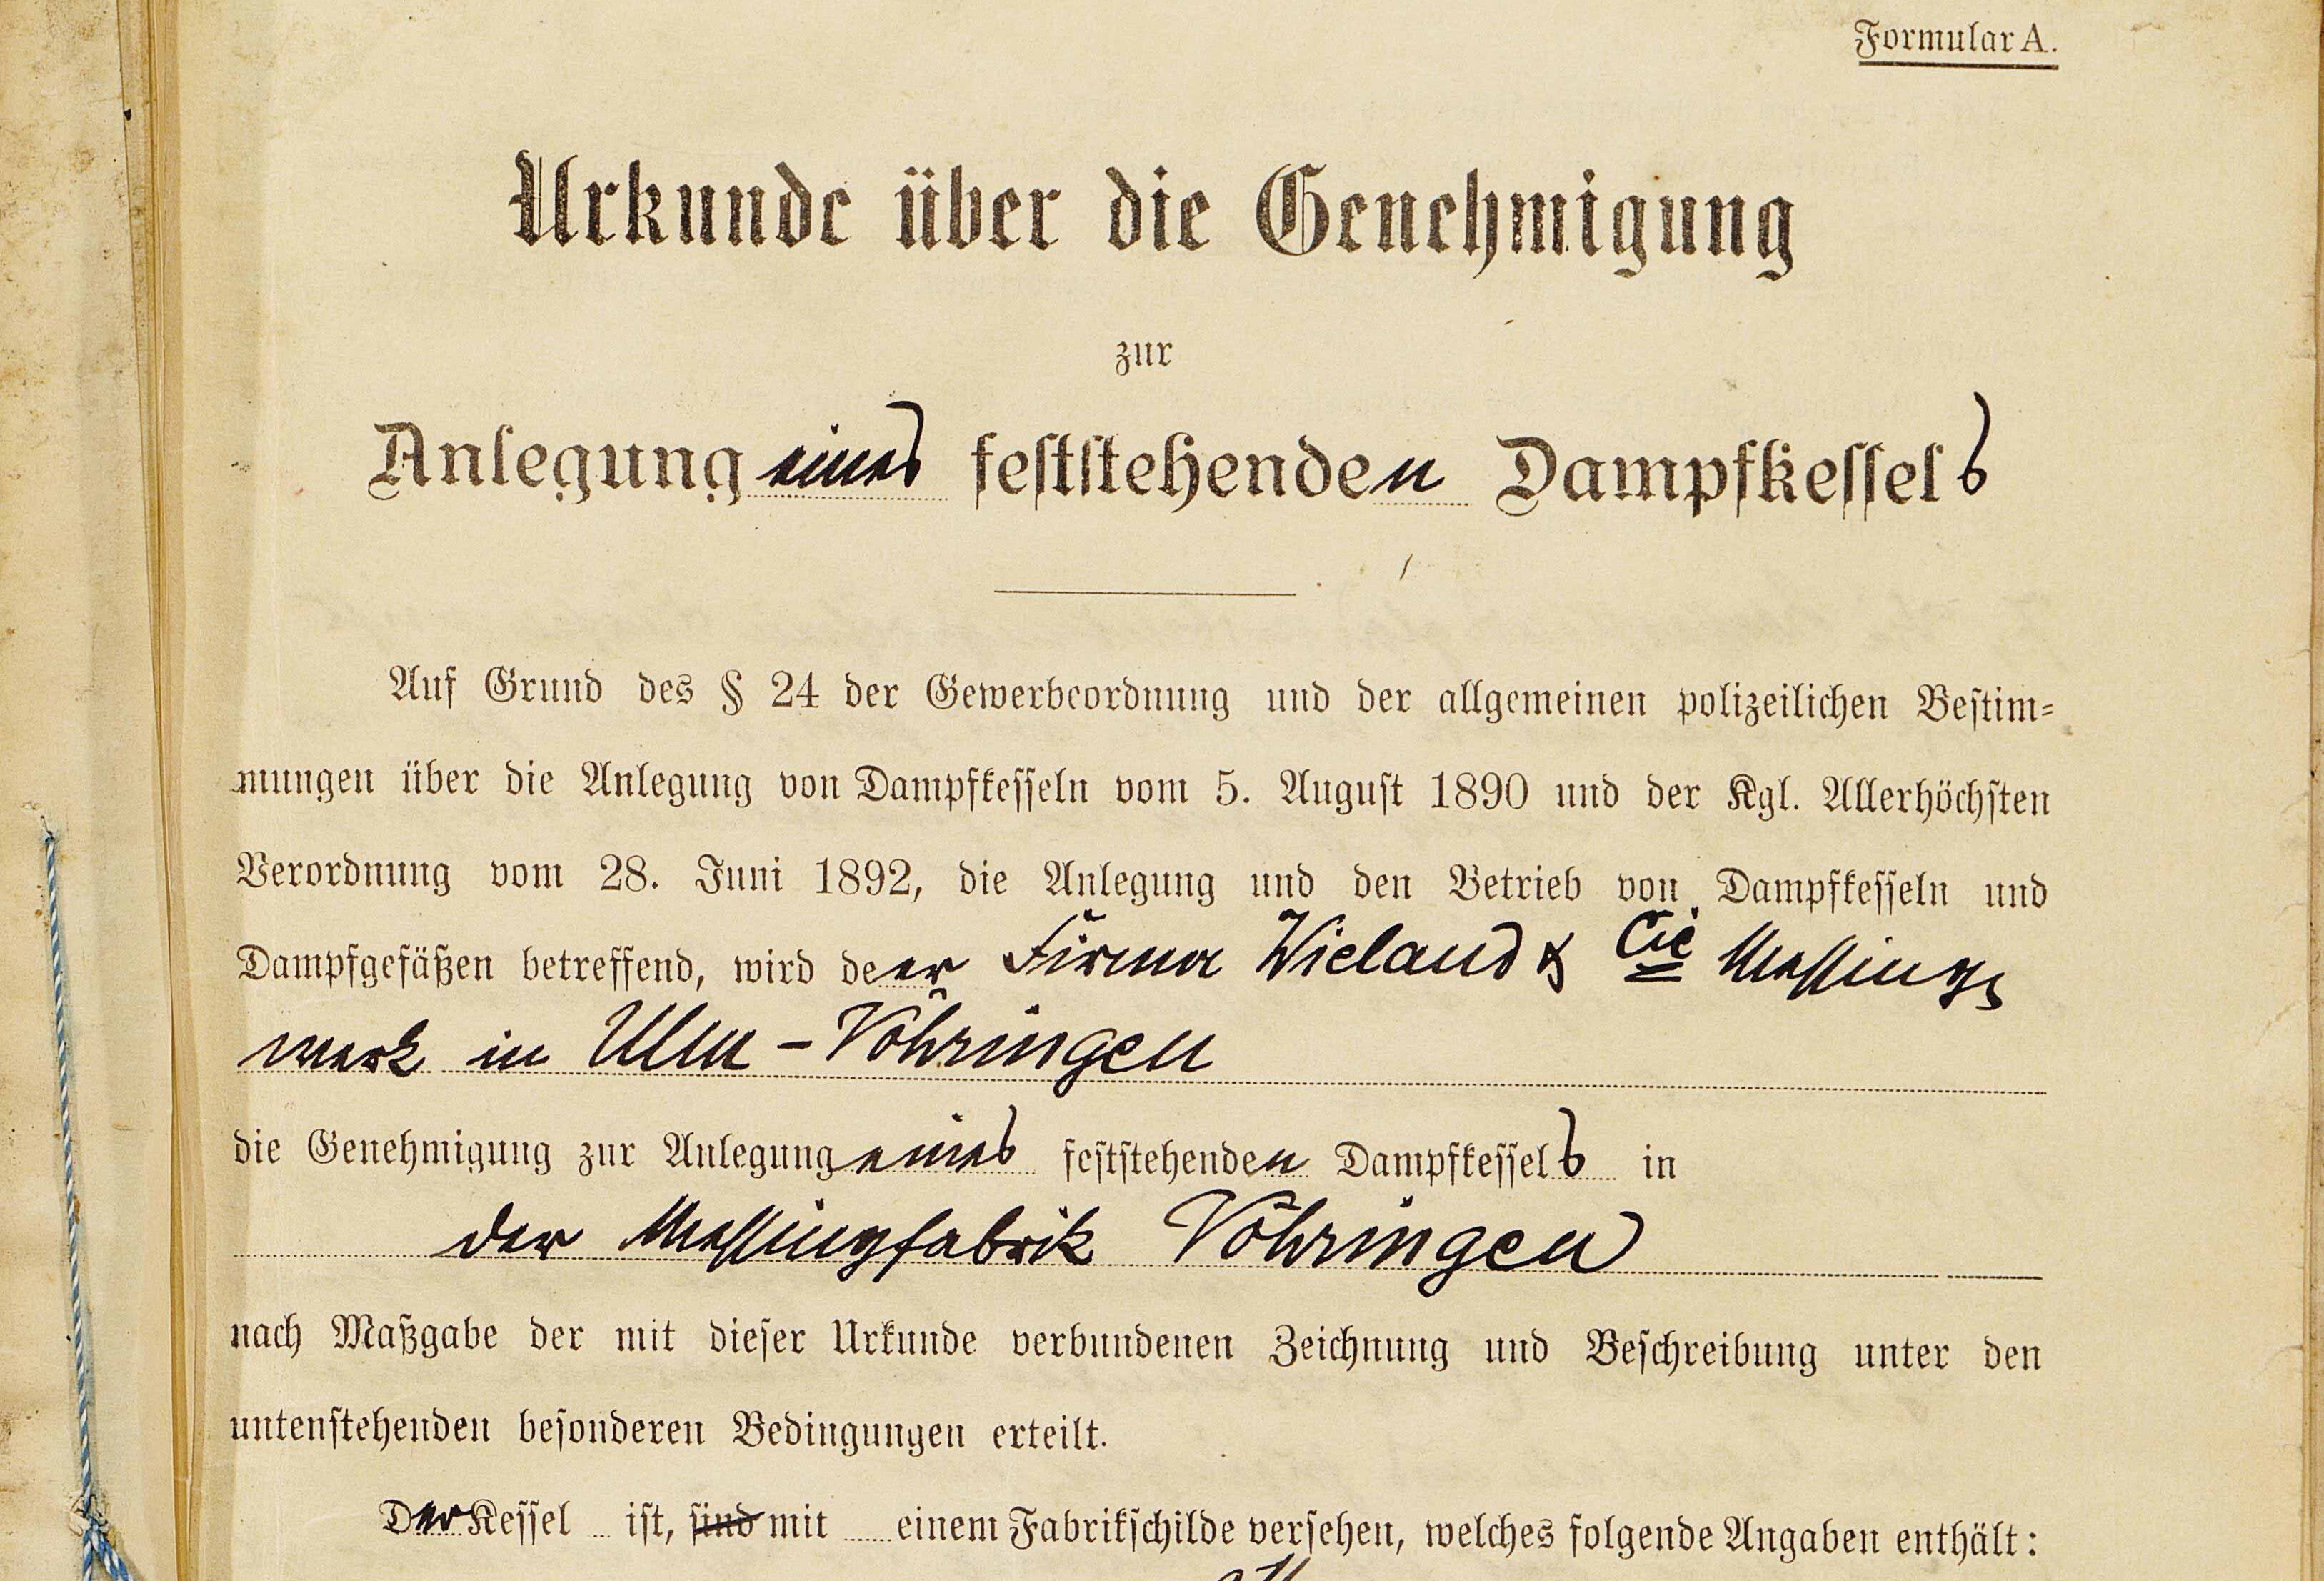 Formular A.
Urkunde über die Genehmigung
zur
Anlegung eines feststehenden Dampfkessels
Auf Grund des § 24 der Gewerbeordnung und der allgemeinen polizeilichen Bestim-
mungen über die Anlegung von Dampfkesseln vom 5. August 1890 und der Kgl. Allerhöchsten
Verordnung vom 28. Juni 1892, die Anlegung und den Betrieb von Dampfkesseln und
Dampfgefäßen betreffend, wird der Firma Wieland & Cie Messings
werk in Ulm - Vöhringen
die Genehmigung zur Anlegung eines feststehenden Dampfkessels in
der Messingfabrik Vöhringen
nach Maßgabe der mit dieser Urkunde verbundenen Zeichnung und Beschreibung unter den
untenstehenden besonderen Bedingungen erteilt.
Der Kessel ist, sind mit einem Fabrikschilde versehen, welches folgende Angaben enthält: